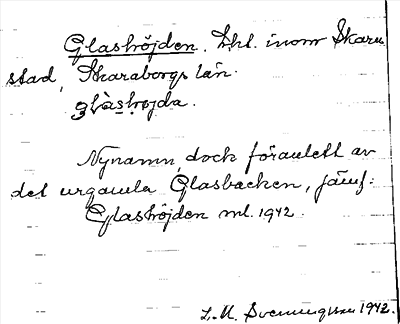 Glashöjden. Lht. inom Skara
stad, Skaraborgs län.
glàshöjda.
Nynamn, dock föranlett av
det urgamla Glasbacken, jämf:
Glashöjden ml. 1942.
L. M. Svenungsson 1942.